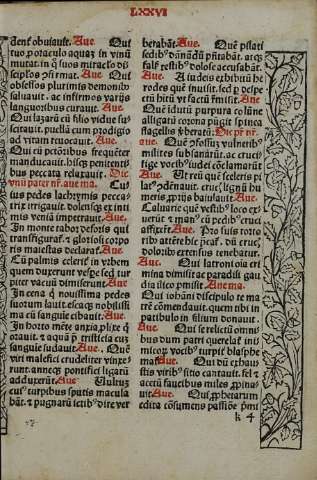 LXXVI
dent̃ obuiauit. Aue. Qui
tuo potaculo aquaȝ in vinũ
mutat. in q̃ suos miraclo di
scip̃los ↄfirmat. Aue Qui
obsessos plurimis demonib⁹
saluauit. ac infirmos varijs
languoribus curauit. Aue.
Qui lazarũ cũ filio vidue su-
scitauit. puellã cum prodigio
ad vitam reuocauit. Aue.
Qui cũ pctõribus frequẽter
manducauit. hisc̃ȝ penitenti
bus peccata relaxauit. Dic
vnũ pater nr̃. aue ma. Cu
ius pedes lachrymis pecca-
trix irrigauit. dolensc̃ȝ ex inti
mis veniã impetrauit. Aue.
In monte tabor deforis qui
transfigurat̃. ⁊ gloriosi corpo
ris maiestas declarat̃ Aue.
Cũ palmis celeriť in vrbem
quem duxerunt vespe sed tur
piter vacuũ dimiserunt Aue
In cena q̃ nouissima pedes
suorum lauit. escaqȝ nobilissi
ma cũ sanguine cibauit. Aue
In horto mẽte anxia ꝓlixe q̃
orauit. ⁊ aqua p̃ tristicia cuȝ
sanguine sudauit. Aue. Quẽ
viri malefici crudeliter vinxe-
runt. anneqȝ pontifici ligatũ
adduxerũt Aue Vultus
cui⁹ turpibus sputis macula
bat̃. ⁊ pugnarũ ictib⁹ dire ver
berabãt. Aue. Quẽ pilati
sedib⁹ dũnãdũ p̃ñtabãt. atqȝ
fals̃ testib⁹ dolose accusabãt.
Aue. A iudeis exhibitũ he
rodes quẽ iniussit. sed p̃ despe
ctũ hũi vt factũ fr̃misit. Aue
Quẽ idutũ purpura colũne
alligatũ corona pugit p̃inca
flagellis x̃beratũ. Dic pr̃ nr̃.
aue. Quẽ ↄfossuȝ vulnerib⁹
milites subsãnãrũt. ac cruci
fige vocib⁹ iudei cõclamarũt
Aue. Vt reũ quẽ sceleris pi
lat⁹ ↄdẽnauit. cruc̃ȝ lignũ hu
meris ꝓprijs baiulauit Aue.
Caluarie quẽ vestib⁹ loco ex-
uerũt ⁊ man⁹ cũ pedib⁹ cruc̃
affixert̃. Aue. Pro suis torto
rib⁹
dolorib⁹ extensus tenebatur.
Aue. Qui latroni oĩa cri
mina dimisit ac paradisi gau
dia illico ꝓmisit. Aue ma.
Qui iohãni discipulo te ma
trẽ cõmendauit. quem tibi in
patibulo in filium donauit.
Aue. Qui se relictũ omni
bus dum patri querelat̃ ini
micorqȝ vocib⁹ turpit̃ blasphe
mat̃ Aue. Qui dũ exhau
stis virib⁹ sitio cantauit. fel ⁊
acetũ faucibus miles ꝓpina-
uit Aue. Qui ꝓphetarum
edita cõsumens passiõe p̃mi
k 4